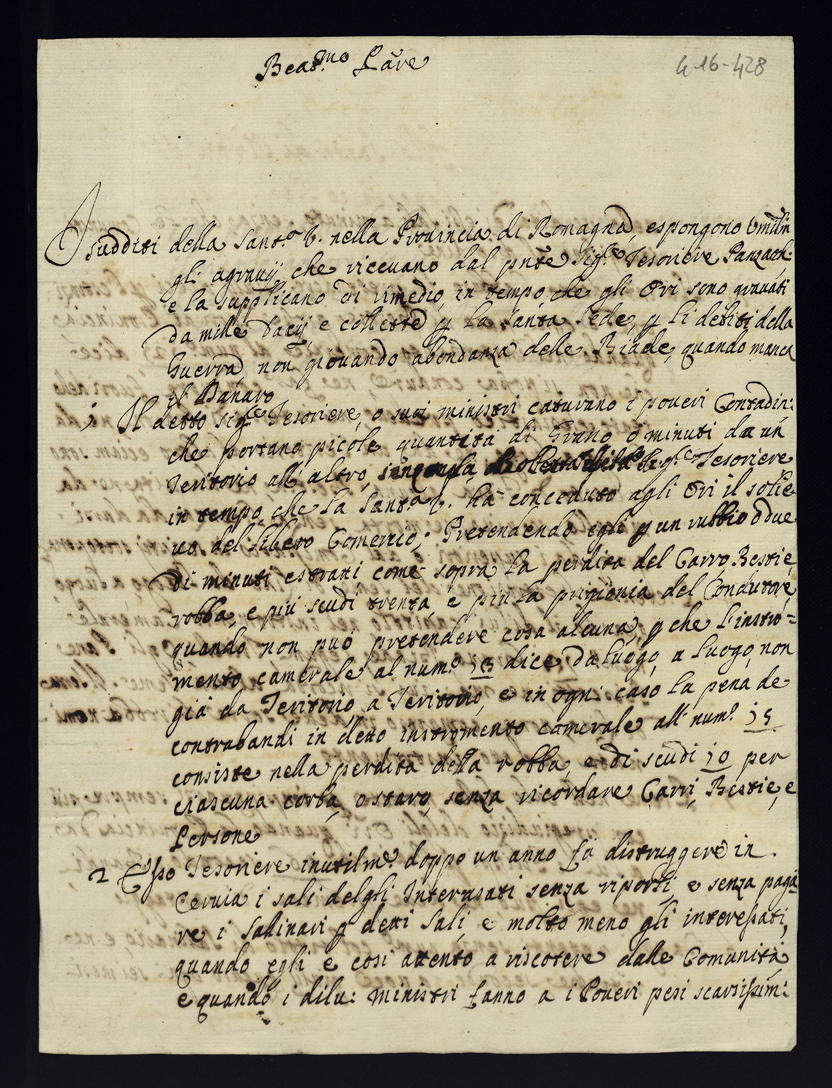 Beat.mo Pãre
4 16-428
I sudditi della Sant.a V. nella Provincia di Romagna espongono Umilm
gli agravij che ricevano dal pnte Sig.re Tesoriere Panzach:
e la supplicano di rimedio, in tempo, che gli Ori sono gravati
da mille Dacij, e collette p la Santa Sede, p li debiti della
Guerra, non giovando abondanza delle Biade, quando manca
il Danaro
1 Il detto Sig.re Tesoriere, o suoi ministri caturano i poveri Contadin:
che portano picole quantità di Grano, o minuti da un
Teritorio all'altro, Sig.re Tesoriere
in tempo, che la Sant.a V. ha conceduto agli Ori il solie
vo del libero Comercio; Pretendendo egli p un rubbio o due
di minuti estrani come sopra la perdita del Carro, Bestie,
robba, e più scudi trenta, e più la prigionia del Condutore,
quando non può pretendere cosa alcuna, p che l'instro=
mento camerale al num.o 13 dice da luogo, a luogo, non
già da Teritorio a Teritorio, e in ogni caso la pena de
contrabandi in detto instrumento camerale all num.o 15
consiste nella perdita della robba, e di scudi 10 per
ciascuna corba, o staro, senza ricordare Carri, Bestie, e
Persone
2 Esso Tesoriere inutilm.e doppo un anno fà distruggere in
Cervia i sali delgli Interessati senza riporli, e senza paga
re i Salinari p detti Sali, e molto meno gli interessati,
quando egli è così attento a riscotere dalle Comunità
e quando i dilu: Ministri fanno a i Poveri pesi scarsissim: